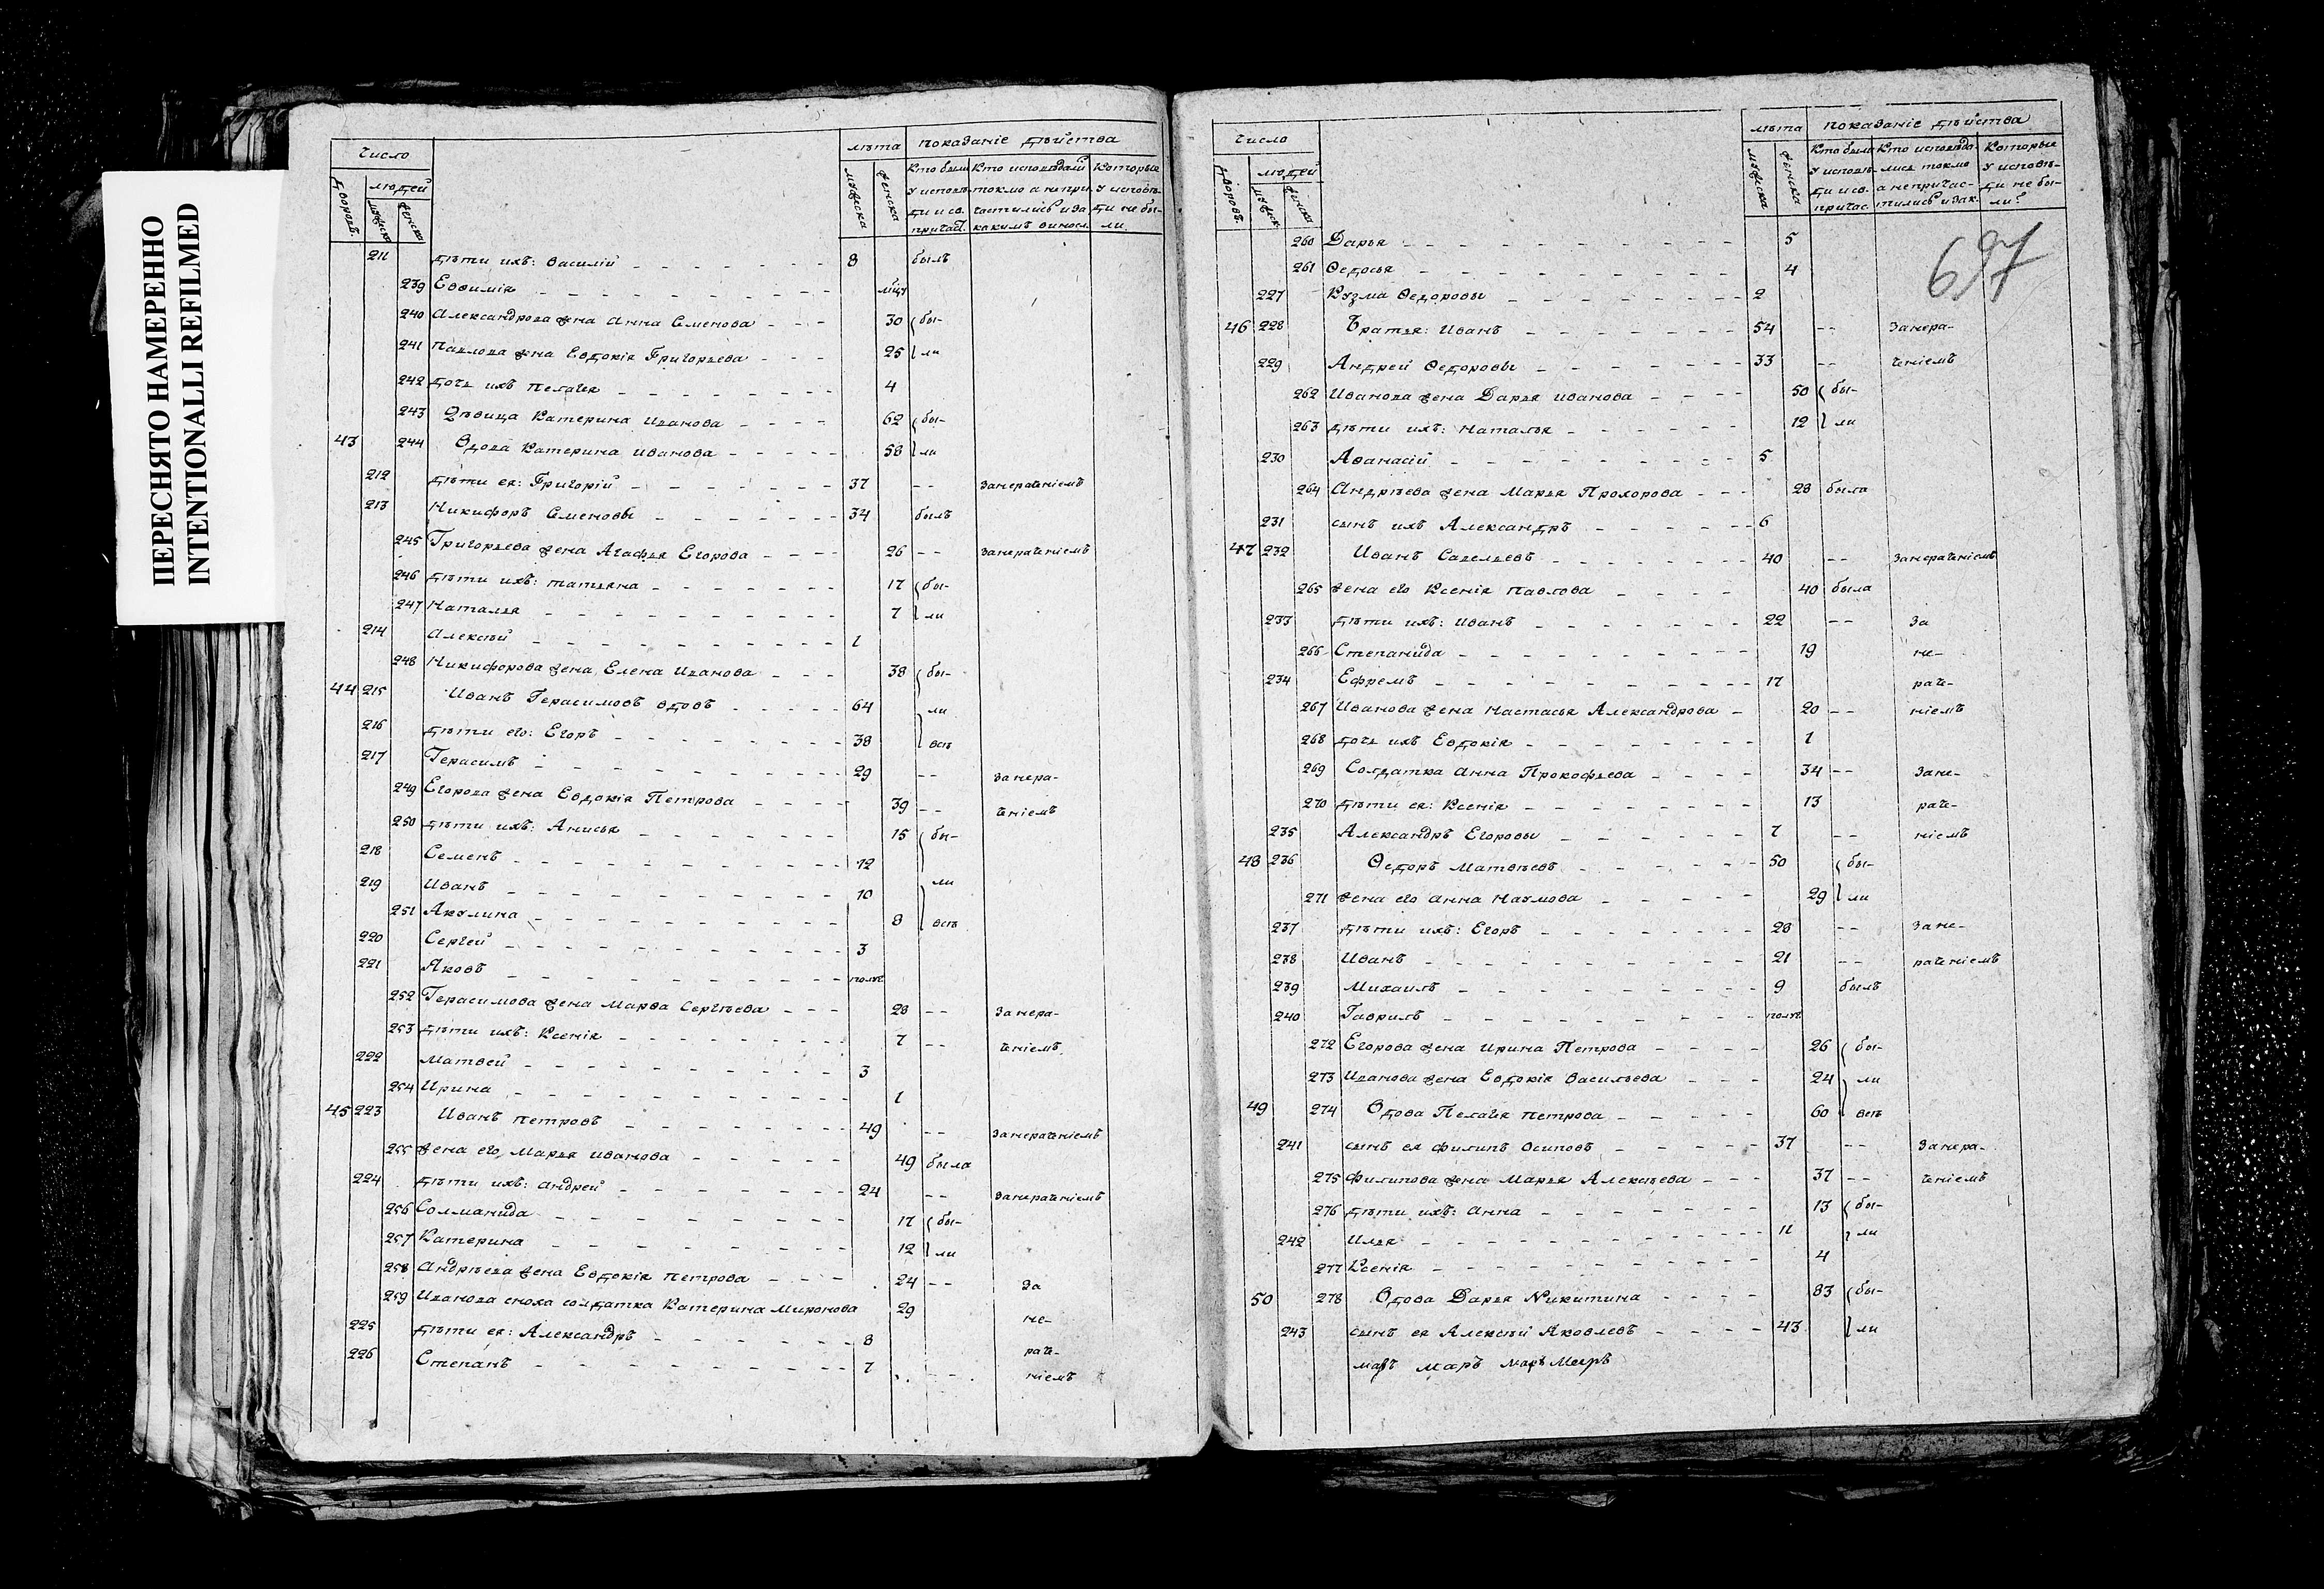 ПЕРЕСНЯТО НАМЕРЕННО
INTENTIONALLI REFILMED
число
лѣта показаніе дѣйства
дворовъ.
людей
мужеска
женска
мужеска
женска
Кто были Кто исповѣдал Которые
у исповѣ- токмо а непри у исповѣ-
ди и св. частились и за ди не бы-
причас. какимъ винос. ли
211 дѣти ихъ: Василій 8 былъ
239 Евѳимія мцъ
240 Александрова жена Анна Семенова 30 бы-
241 Павлова жена Евдокія Григорьева 25 ли
242 дочь ихъ Пелагея 4
243 Дѣвица Катерина Иванова 62 бы-
43 244 Вдова Катерина Иванова 58 ли
212 дѣти ея: Григорій 37 -- занераченіемъ
213 Никифоръ Семеновы 34 былъ
245 Григорьева жена Агафья Егорова 26 -- занераченіемъ
246 дѣти ихъ: Татьяна 17 бы-
247 Наталья 7 ли
214 Алексѣй 1
248 Никифорова жена Елена Иванова 38 бы-
44 215 Иванъ Герасимовъ вдовъ 64 ли
216 дѣти его: Егоръ 38 всѣ
217 Герасимъ 29 -- занера-
249 Егорова жена Евдокія Петрова 39 -- ченіемъ
250 дѣти ихъ: Анисья 15 бы-
218 Семенъ 12
219 Иванъ 10 ли
251 Акулина 8 всѣ
220 Сергей 3
221 Яковъ полг
252 Герасимова жена Марѳа Сергѣева 28 -- занера-
253 дѣти ихъ: Ксенія 7 -- ченіемъ
222 Матвей 3
254 Ирина 1
45 223 Иванъ Петровъ 49 -- занераченіемъ
255 жена его Марья Иванова 49 была
224 дѣти ихъ: Андрей 24 -- занераченіемъ
256 Солманида 17 бы-
257 Катерина 12 ли
258 Андрѣева жена Евдокія Петрова 24 -- за
259 Иванова сноха солдатка Катерина Миронова 29 не-
225 дѣти ея: Александръ 8 раче-
226 Степанъ 7 -- ніемъ
число
лѣта показаніе дѣйства
дворовъ.
людей
мужеск
женска
мужеска
женска
Кто были Кто исповѣда- Которые
у исповѣ- лись токмо у исповѣ-
ди и св. а непричас- ди не бы-
причас. тились и зак. ли?
697
260 Дарья 5
261 Ѳедосья 4
227 Кузма Ѳедоровы 2
46 228 Братья: Иванъ 54 -- занера-
229 Андрей Ѳедоровы 33 -- ченіемъ
262 Иванова жена Дарья Иванова 50 бы-
263 дѣти ихъ: Наталья 12 ли
230 Аѳанасій 5
264 Андрѣева жена Марья Прохорова 28 была
231 сынъ ихъ Александръ 6
47 232 Иванъ Савельевъ 40 -- занераченіемъ
265 жена его Ксенія Павлова 40 была
233 дѣти ихъ: Иванъ 22 -- за
266 Степанида 19 не-
234 Ефремъ 17 раче-
267 Иванова жена Настасья Александрова 20 -- ніемъ
268 дочь ихъ Евдокія 1
269 Солдатка Анна Прокофьева 34 -- зане-
270 дѣти ея: Ксенія 13 раче-
235 Александръ Егоровы 7 -- ніемъ
48 236 Ѳедоръ Матвѣевъ 50 бы-
271 жена его Анна Наумова 29 ли
237 дѣти ихъ: Егоръ 28 -- зане-
238 Иванъ 21 -- раченіемъ
239 Михаилъ 9 былъ
240 Гаврилъ полг
272 Егорова жена Ирина Петрова 26 бы-
273 Иванова жена Евдокія Васильева 24 ли
49 274 Вдова Пелагея Петрова 60 всѣ
241 сынъ ея Филипъ Осиповъ 37 -- занера-
275 Филипова жена Марья Алексѣева 37 -- ченіемъ
276 дѣти ихъ: Анна 13 бы-
242 Илья 11 ли
277 Ксенія 4
50 278 Вдова Дарья Никитина 83 бы-
243 сынъ ея Алексѣй Яковлевъ 43 ли
маръ маръ